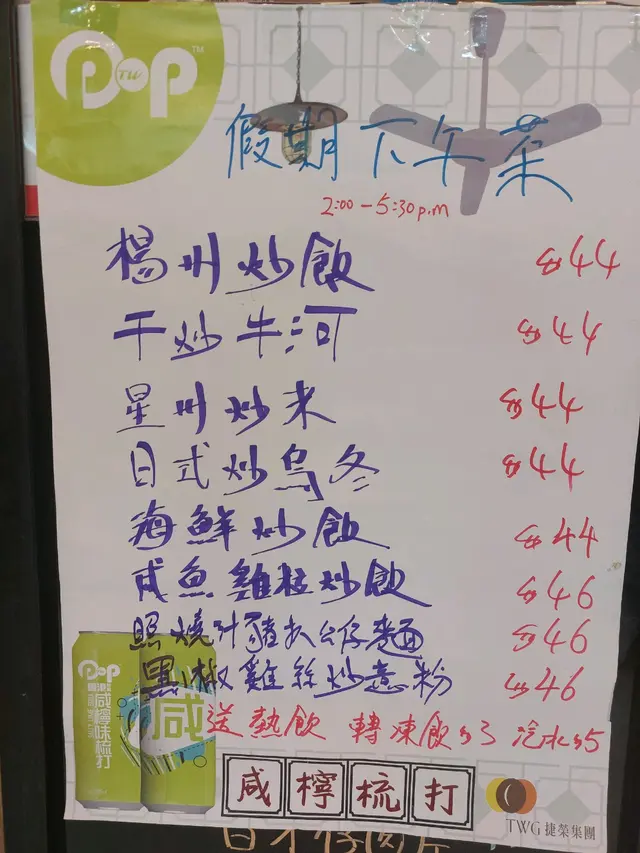 POP TW ™
假期下午茶
2:00-5:30p.m
楊州炒飯 $44
干炒牛河 $44
星州炒米 $44
日式炒烏冬 $44
海鮮炒飯 $44
咸魚雞粒炒飯 $46
照燒汁豬扒公仔麵 $46
黑椒雞絲炒意粉 $46
送熱飲 轉凍飲$3 汽水$5
POP
咸檸味梳打
咸
咸檸梳打
TWG 捷榮集團